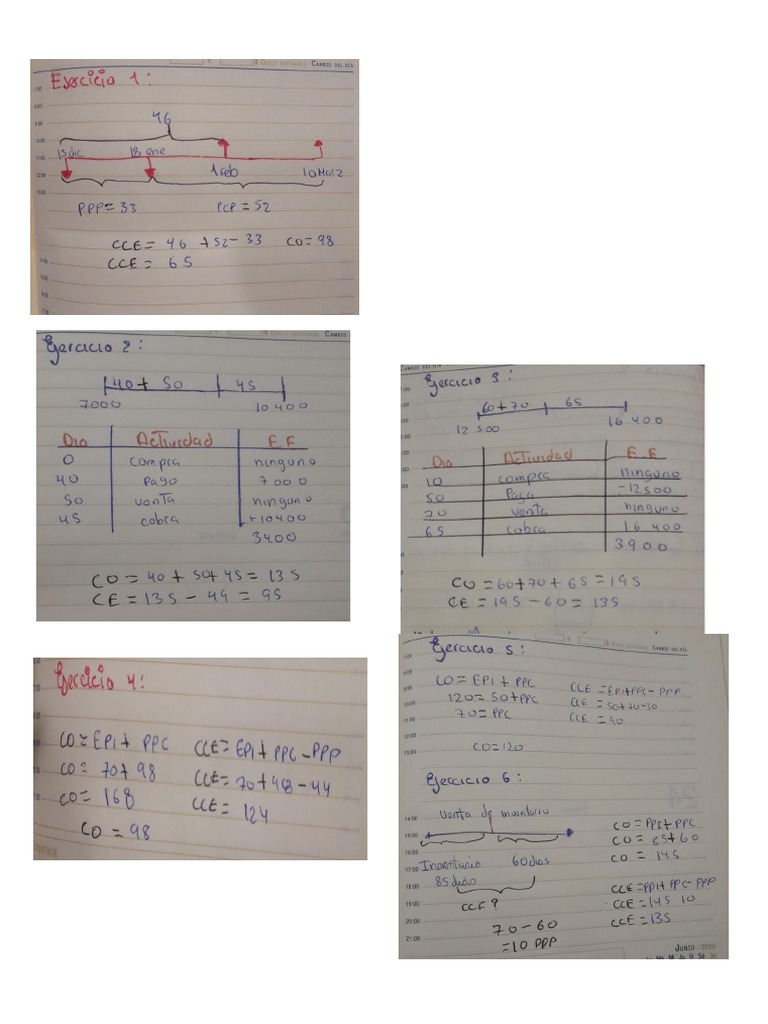 CAMBIO DEL DÍA
Ejercicio 1:
46
13 dic 18 ene 1 feb 10 Marz
PPP= 33 PCP= 52
CCE= 46 +52- 33 CO= 98
CCE= 65
CAMBIO
Ejercicio 2:
40+ 50 45
7000 10 400
Dia Actividad E.E
0 compra ninguno
40 pago 7000
50 venta ninguno
45 cobra +10400
3400
CO= 40+ 50+ 45= 135
CE= 135 - 44 = 95
CAMBIO DEL DÍA
Ejercicio 3:
60+70 65
12 500 16 400
Dia Actividad E.E
10 compra ninguno
50 Paga -12500
70 venta ninguno
65 cobra 16 400
3900
CO=60+70+65=195
CE=195-60=135
Ejercicio 4:
CO=EPI+ PPC CCE=EPI+ PPC-PPP
CO= 70+98 CCE=70+98-44
CO= 168 CCE= 124
CO = 98
CAMBIO DEL DÍA
Ejercicio 5:
CO=EPI+PPC CCE=EPI+PPC-PPP
120=50+PPC CCE=50+70-30
70=PPC CCE=90
CO=120
Ejercicio 6:
Venta de inventario
CO=PPI+PPC
CO= 85+60
CO = 145
Inventario 60 dias
85 dias
CCE?
CCE=PPI+PPC-PPP
CCE=145 10
CCE=135
70-60
=10 PPP
JUNIO 2000